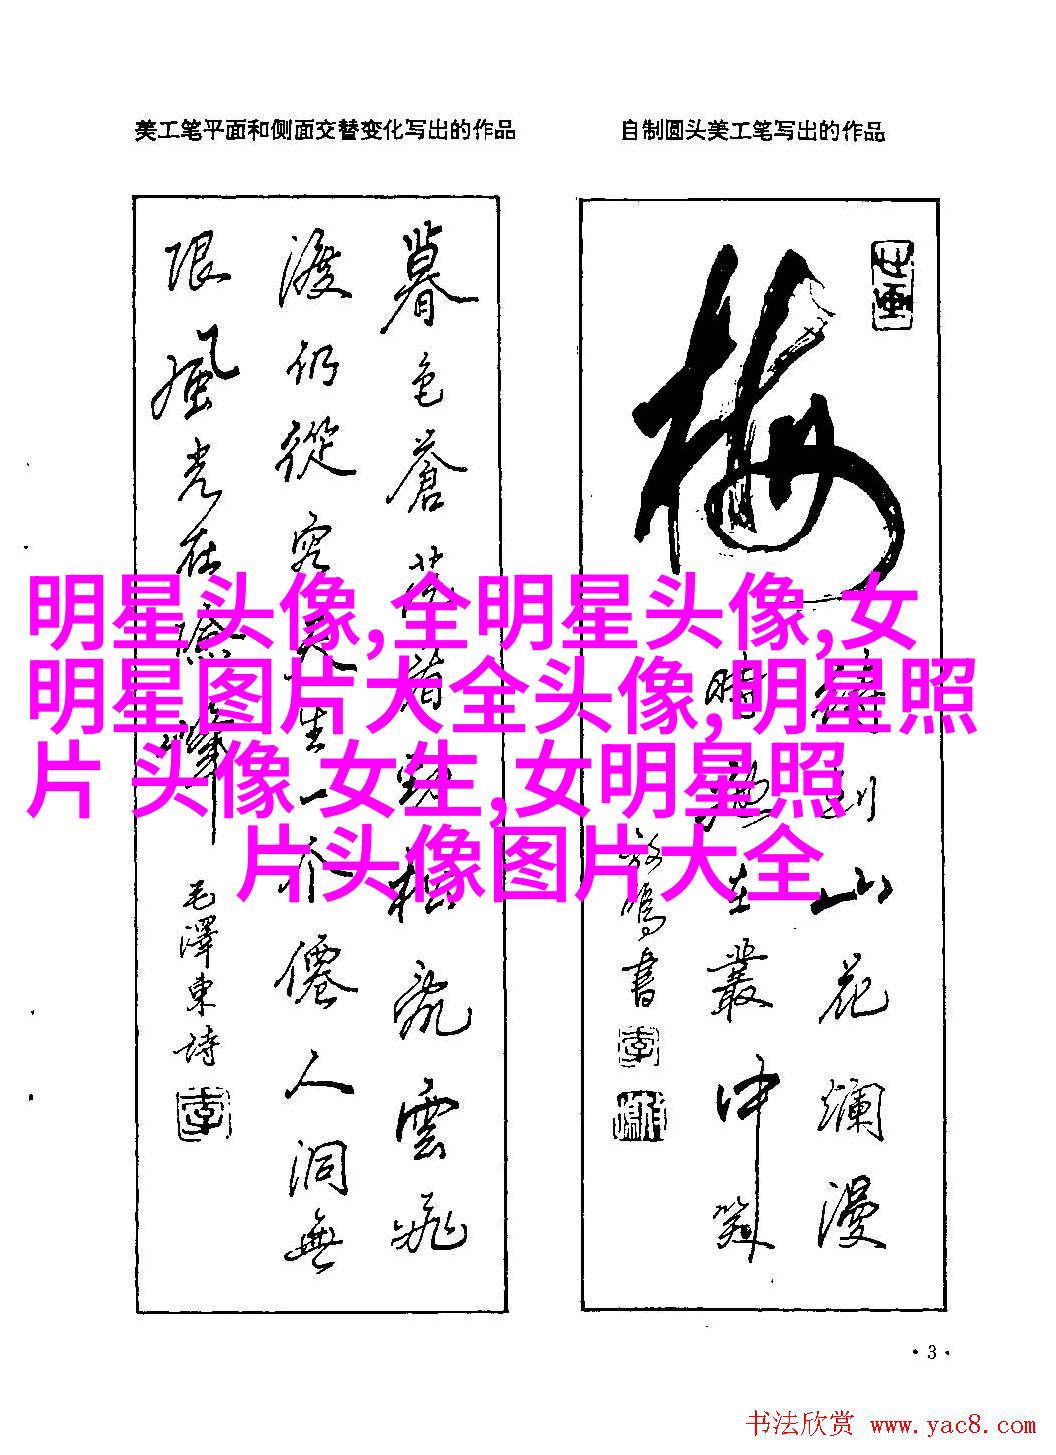 美工笔平面和侧面交替变化写出的作品
自制圆头美工笔写出的作品
暮色蒼茫看勁松亂雲飛
渡仍從容天生一个僊人洞無
限風光在險峰
毛澤東詩
梅
待到山花爛漫
時她在叢中笑
书
明星头像,全明星头像,女
明星图片大全头像,明星照
片 头像 女生,女明星照
片头像图片大全
·3·
书法欣赏 www.yac8.com